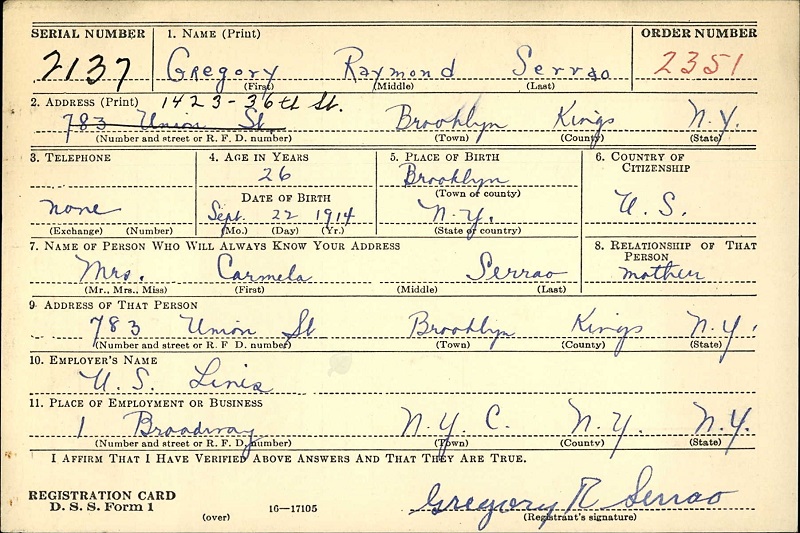 SERIAL NUMBER 1. NAME (Print) ORDER NUMBER
2137 Gregory Raymond Serrao 2351
(First) (Middle) (Last)
2. ADDRESS (Print) 1423-36th St.
783 Union St Brooklyn Kings N.Y.
(Number and street or R. F. D. number) (Town) (County) (State)
3. TELEPHONE 4. AGE IN YEARS 5. PLACE OF BIRTH 6. COUNTRY OF CITIZENSHIP
26 Brooklyn
(Town of county)
DATE OF BIRTH
none Sept. 22 1914 N.Y. U.S.
(Exchange) (Number) (Mo.) (Day) (Yr.) (State of country)
7. NAME OF PERSON WHO WILL ALWAYS KNOW YOUR ADDRESS 8. RELATIONSHIP OF THAT PERSON
Mrs. Carmela Serrao mother
(Mr., Mrs., Miss) (First) (Middle) (Last)
9. ADDRESS OF THAT PERSON
783 Union St Brooklyn Kings N.Y.
(Number and street or R. F. D. number) (Town) (County) (State)
10. EMPLOYER'S NAME
U. S. Lines
11. PLACE OF EMPLOYMENT OR BUSINESS
1 Broadway N.Y.C. N.Y. N.Y.
(Number and street or R. F. D. number) (Town) (County) (State)
I AFFIRM THAT I HAVE VERIFIED ABOVE ANSWERS AND THAT THEY ARE TRUE.
REGISTRATION CARD
D. S. S. Form 1 16—17105 Gregory R Serrao
(over) (Registrant's signature)